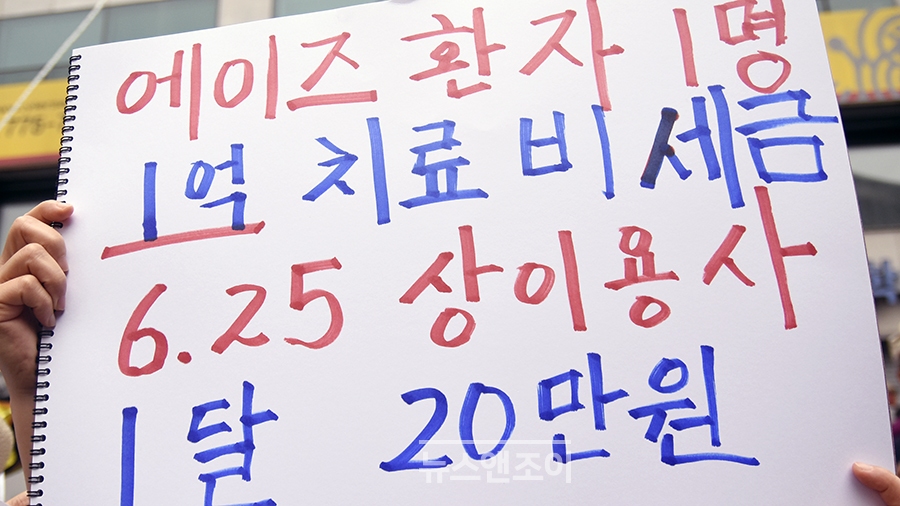 에이즈 환자 1명
1억 치료비 세금
6.25 상이용사
1달 20만원
뉴스앤조이